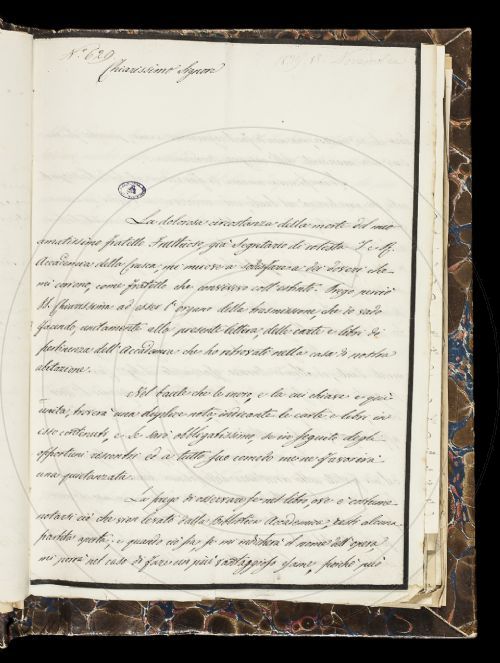 N.° 629
1839. 18. Novembre
Chiarissimo Signore
La dolorosa circostanza della morte del mio
amatissimo fratello Fruttuoso già Segretario di cotesta I. e R.
Accademia della Crusca, mi muove a sodisfare a dei doveri che
mi corrono, come fratello che conviveva coll'estinto. Prego perciò
V.S. Chiarissima ad esser l'organo della trasmissione che io vado
facendo, unitamente alla presente lettera, delle carte e libri di
pertinenza dell'Accademia che ho ritrovati nella casa di nostra
abitazione.
Nel baule che le invio, e la cui chiave è qui
unita, troverà una duplice nota indicante le carte e libri in
esso contenuti, e Le sarò obbligatissimo, se in seguito degli
opportuni riscontri ed a tutto suo comodo me ne favorirà
una quietanzata.
La prego di osservare se nel libro, ove è costume
notarsi ciò che vien levato dalla Biblioteca Accademica, resti alcuna
partita aperta; e quando ciò sia, se mi indicherà il nome dell'opera,
mi porrà nel caso di fare un più vantaggioso esame, poichè può